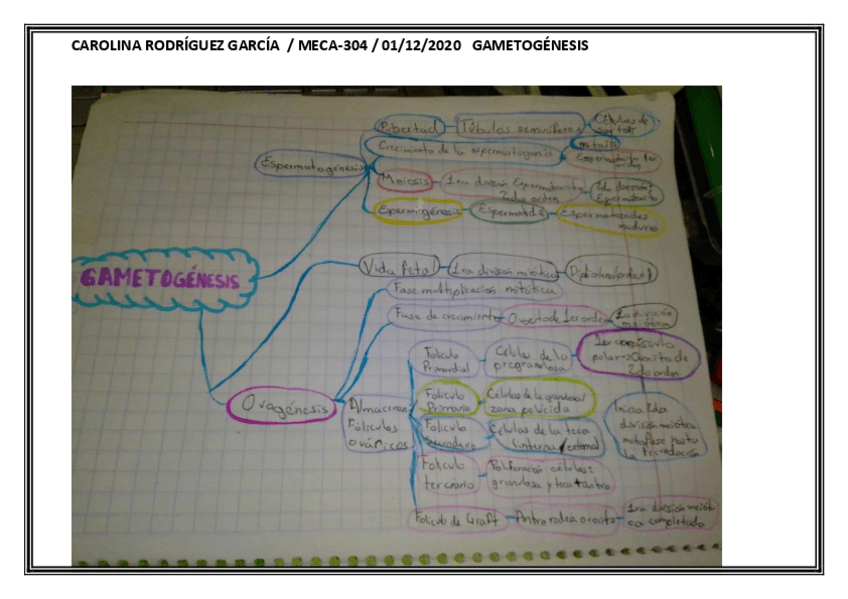 CAROLINA RODRÍGUEZ GARCÍA / MECA-304 / 01/12/2020 GAMETOGÉNESIS
GAMETOGÉNESIS
Espermatogénesis
Pubertad
Túbulos seminíferos
Células de
Crecimiento de la espermatogonia
Meiosis
1ra división Espermatocito
2do orden
2da división:
Espermiogénesis
Espermatozoides
maduros
Ovogénesis
Vida fetal
1ra división meiótica
Fase multiplicación mitótica
Fase de crecimiento
Ovocito de 1er orden
1a división
meiótica
Almacenan
Fóliculos
ováricos
Foliculo
Primordial
Células de la
pregranulosa
1er corpúsculo
polar → Ovocito de
2do orden
Foliculo
Primario
Células de la granulosa/
zona pelúcida
Foliculo
Secundario
Células de la teca
(interna/externa)
Inicia 2da
división meiótica
metafase
la fecundación
Foliculo
terciario
Proliferación células:
granulosa y teca + antro
Foliculo de Graff
Antro rodea ovocito
1ra división meiót
ica completada